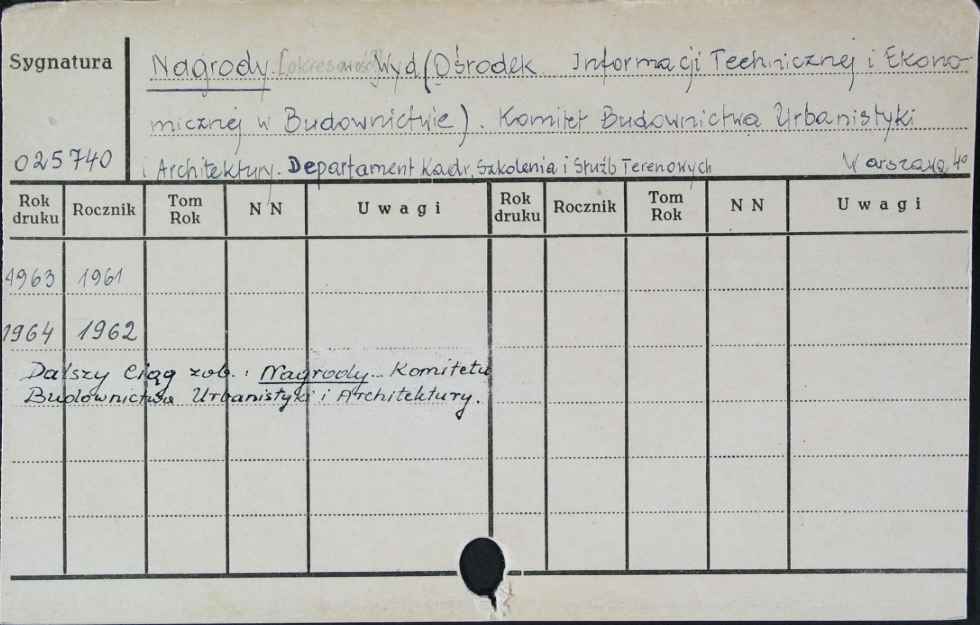 Sygnatura
Nagrody. [okresowość] Wyd (Ośrodek Informacji Technicznej i Ekono-
micznej w Budownictwie). Komitet Budownictwa Urbanistyki
025740
i Architektury. Departament Kadr, Szkolenia i Służb Terenowych Warszawa, 4°
Rok druku Rocznik Tom Rok NN Uwagi Rok druku Rocznik Tom Rok NN Uwagi
1963 1961
1964 1962
Dalszy Ciąg zob.: Nagrody... Komitetu
Budownictwa Urbanistyki i Architektury.